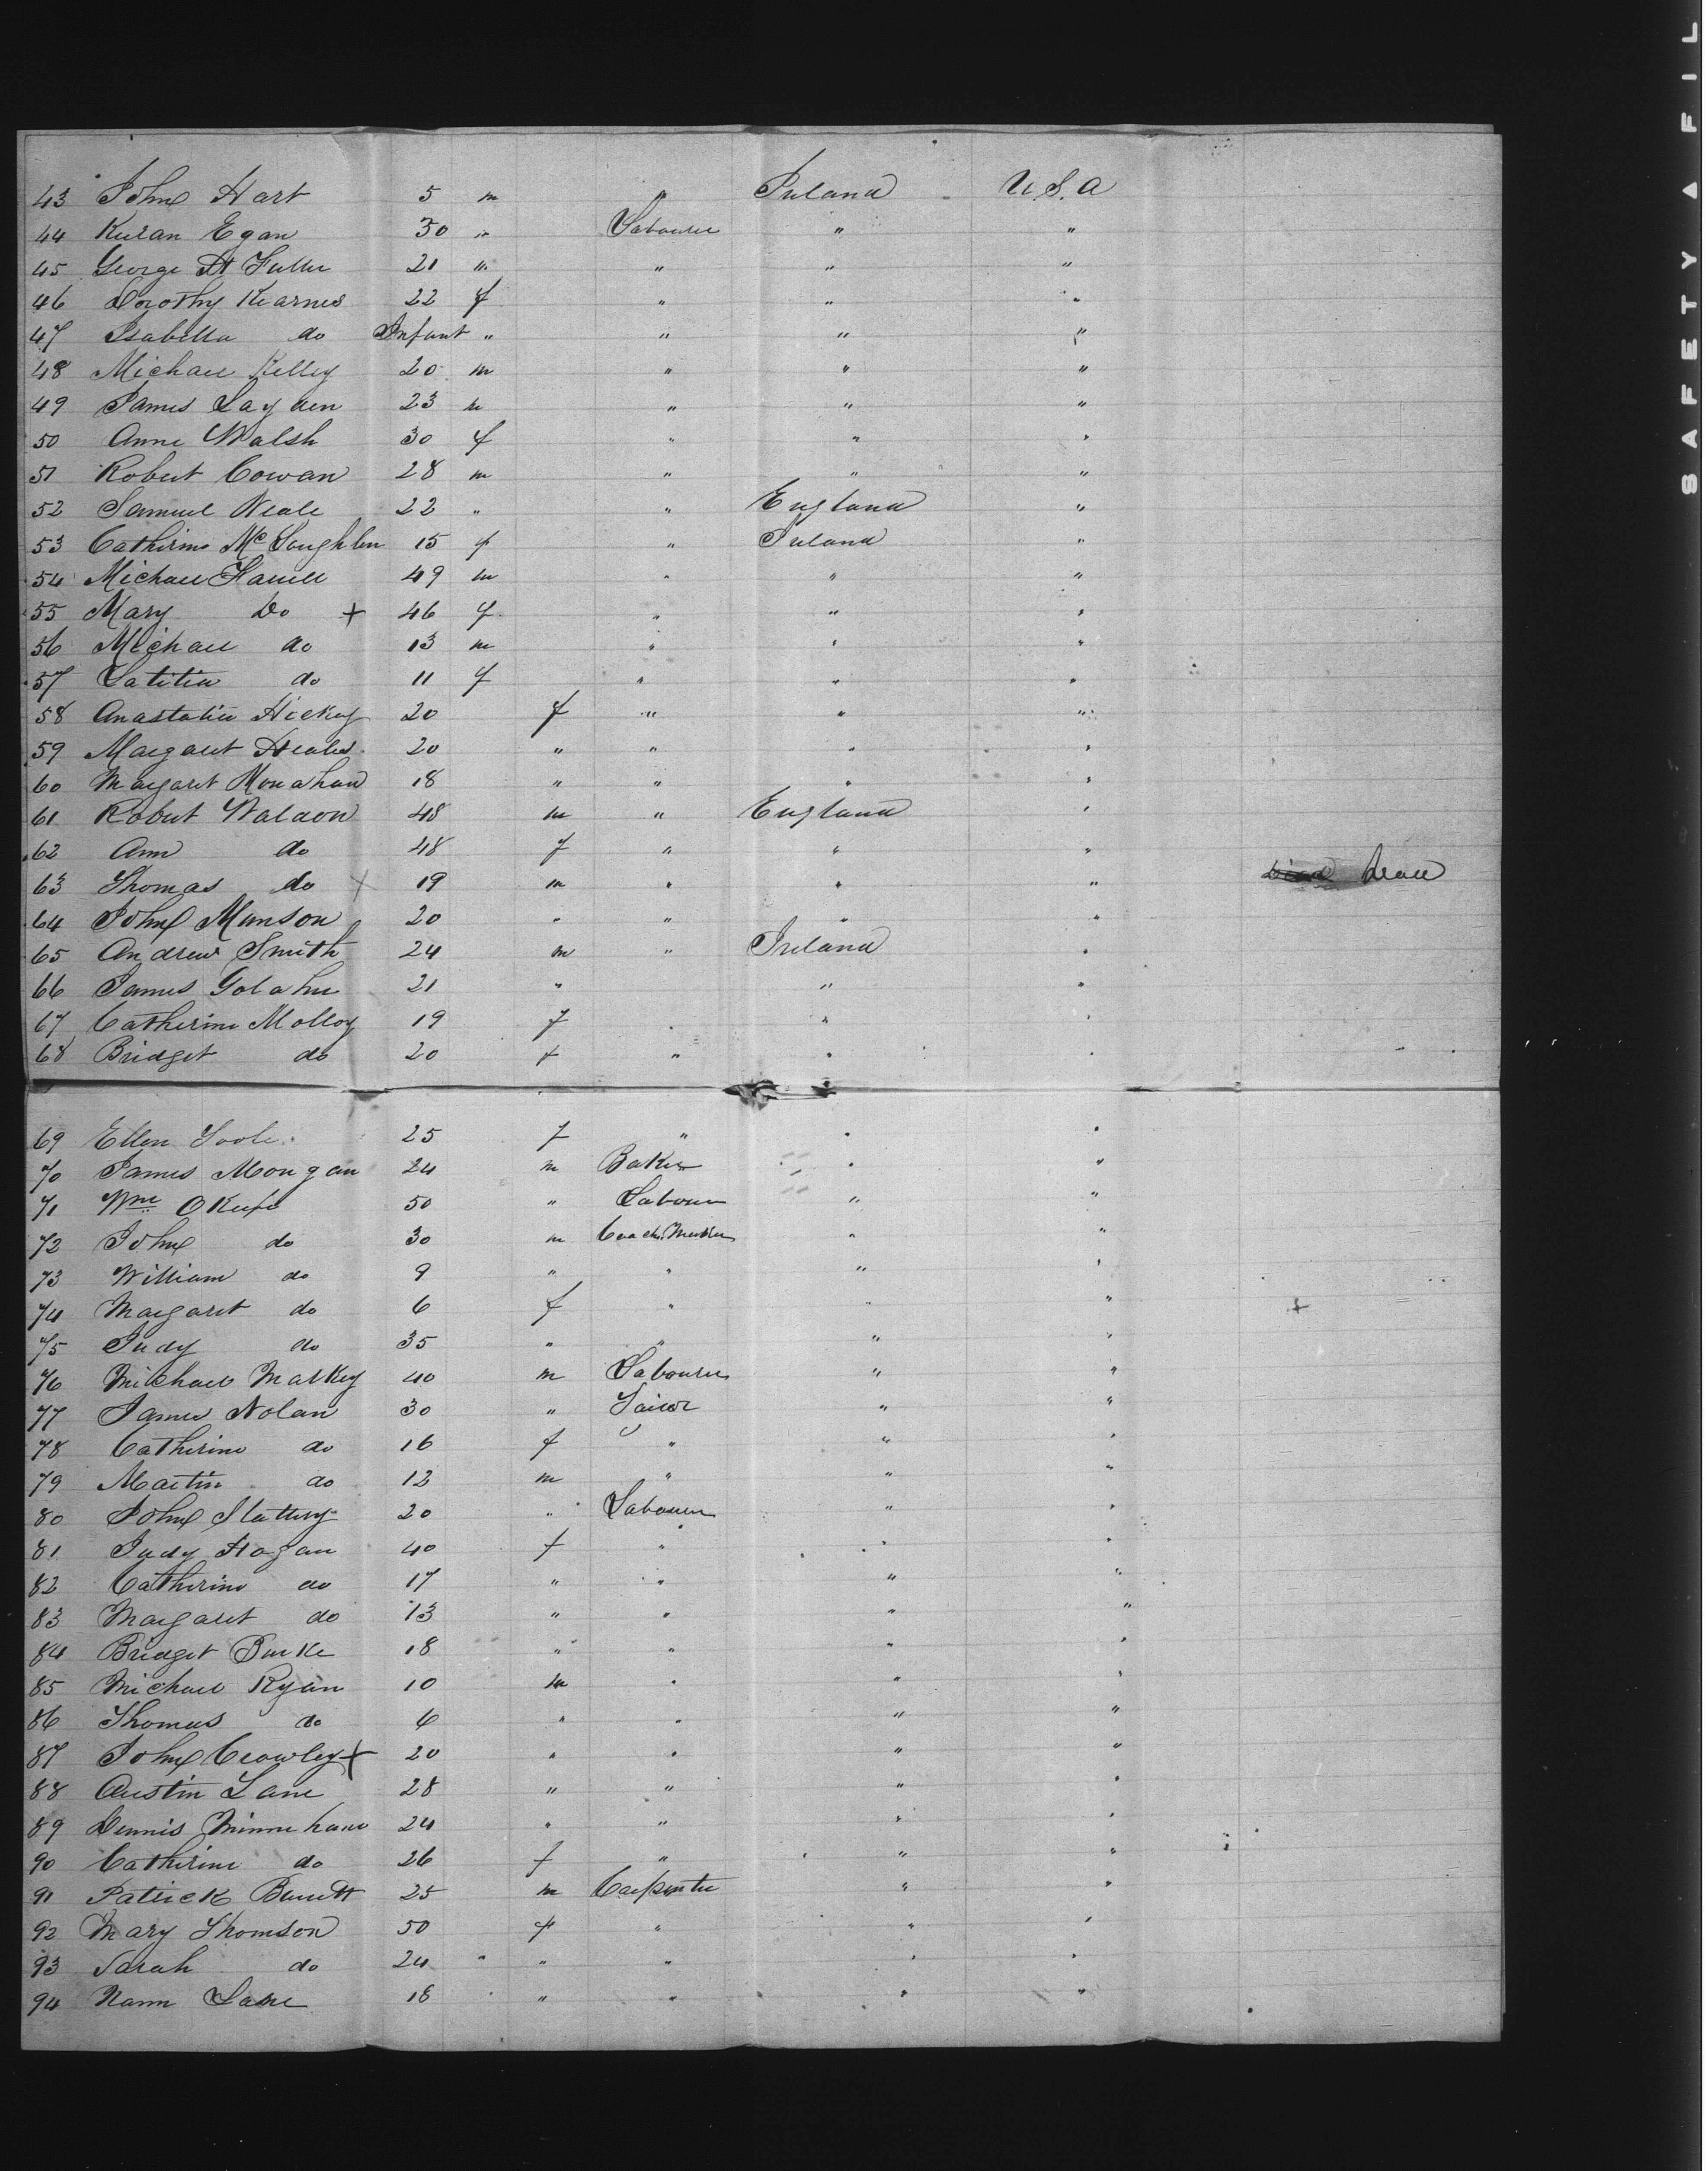 SAFETY A FIL
43 John Hart 5 m " Ireland U.S.A
44 Kieran Egan 30 " Labourer " "
45 George H Fuller 21 " " " "
46 Dorothy Kearnes 22 f " " "
47 Isabella do Infant " " " "
48 Michael Kelley 20 m " " "
49 James Layden 23 m " " "
50 Anne Walsh 30 f " " "
51 Robert Cowan 28 m " " "
52 Samuel Neale 22 " " England "
53 Catherine McLoughlin 15 f " Ireland "
54 Michael 49 m " " "
55 Mary Do + 46 f " " "
56 Michael do 13 m " " "
57 Latitia do 11 f " " "
58 Anastatia Hickey 20 f " " "
59 Margaret 20 " " " "
60 Margaret Monahan 18 " " " "
61 Robert Waldon 48 m " England "
62 Ann do 48 f " " "
63 Thomas do + 19 m " " " Dead
64 John Munson 20 " " " "
65 Andrew Smith 24 m " Ireland "
66 James 21 " " "
67 Catherine Molloy 19 f " " "
68 Bridget do 20 f " " "
69 Ellen Toole 25 f " " "
70 James Mongan 24 m Baker " "
71 Wm OKeefe 50 " Labourer " "
72 John do 30 m Coach Maker " "
73 William do 9 " " " "
74 Margaret do 6 f " " " +
75 Judy do 35 " " " "
76 Michael Markey 40 m Labourer " "
77 James Nolan 30 " Tailor " "
78 Catherine do 16 f " " "
79 Martin do 12 m " " "
80 John Slattery 20 " Labourer " "
81 Judy Hogan 40 f " " "
82 Catherine do 17 " " " "
83 Margaret do 13 " " " "
84 Bridget Burke 18 " " " "
85 Michael Ryan 10 m " " "
86 Thomas do 6 " " " "
87 John Crowley + 20 " " " "
88 Austin Lane 28 " " " "
89 Dennis Minnehane 24 " " " "
90 Catherine do 26 f " " "
91 Patrick 25 m Carpenter " "
92 Mary Thomson 50 f " " "
93 Sarah do 24 " " " "
94 Lane 18 " " " "